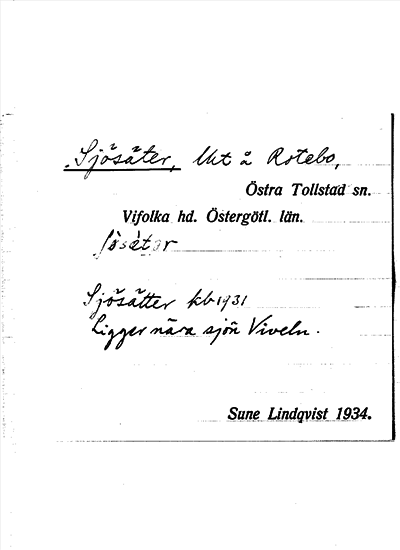 Sjösäter, Utt å Rotebo,
Östra Tollstad sn.
Vifolka hd. Östergötl. län.
Sjösätter kb 1931
Ligger nära sjön Viveln.
Sune Lindqvist 1934.